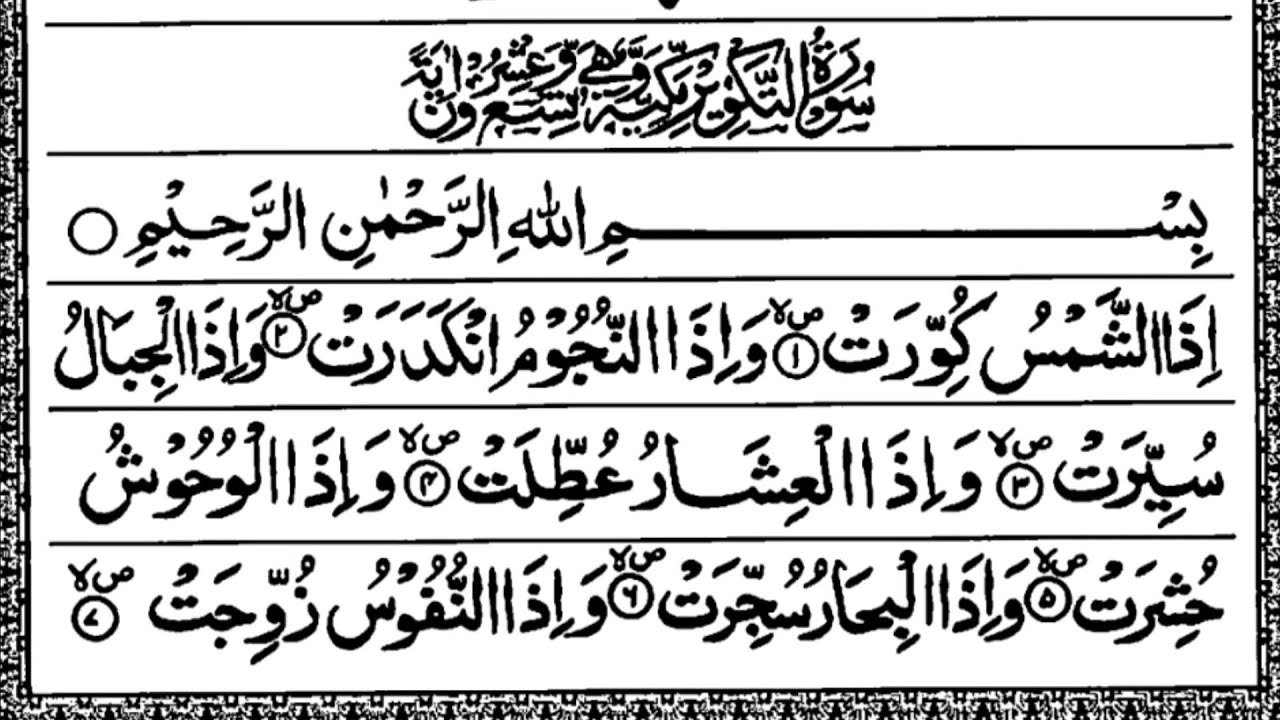 سُوْرَةُ التَّكْوِيْرِ مَكِّيَّةٌ وَّهِيَ تِسْعٌ وَّعِشْرُوْنَ اٰيَةً
بِسْمِ اللهِ الرَّحْمٰنِ الرَّحِيْمِ ○
اِذَا الشَّمْسُ كُوِّرَتْ ۪ۙ ﴿۱﴾ وَاِذَا النُّجُوْمُ انْكَدَرَتْ ۪ۙ ﴿۲﴾ وَاِذَا الْجِبَالُ
سُيِّرَتْ ۪ۙ ﴿۳﴾ وَاِذَا الْعِشَارُ عُطِّلَتْ ۪ۙ ﴿۴﴾ وَاِذَا الْوُحُوْشُ
حُشِرَتْ ۪ۙ ﴿۵﴾ وَاِذَا الْبِحَارُ سُجِّرَتْ ۪ۙ ﴿۶﴾ وَاِذَا النُّفُوْسُ زُوِّجَتْ ۪ۙ ﴿۷﴾